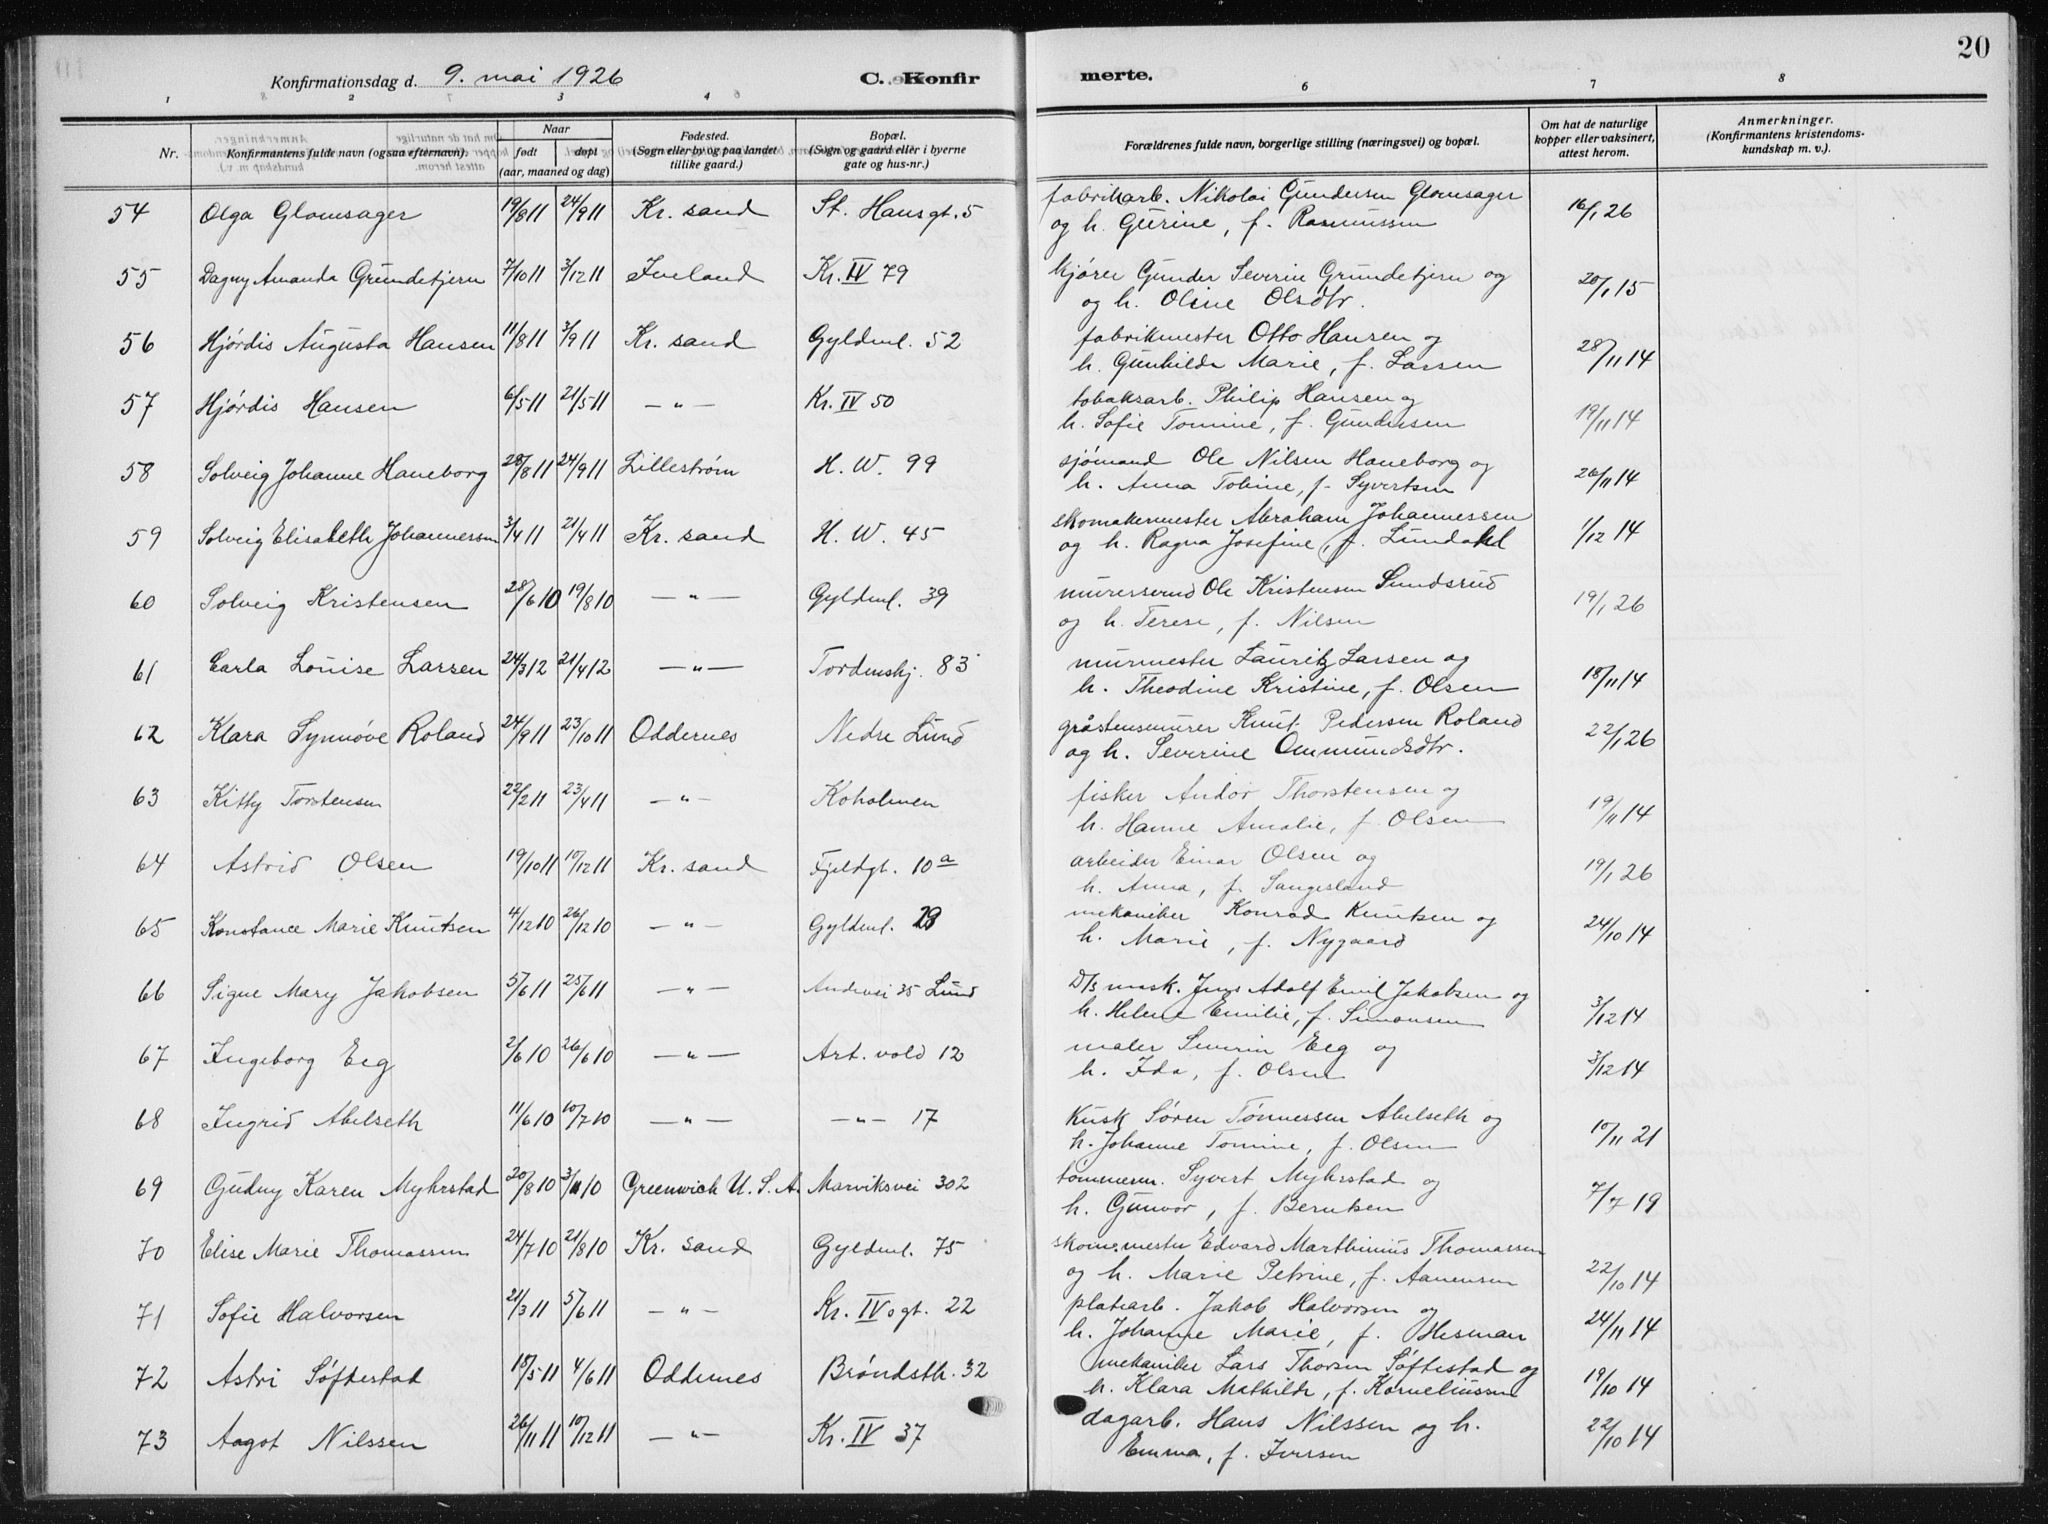 20
Konfirmationsdag d. 9. mai 1926 C. Konfirmerte.
1 2 3 4 5 6 7 8
Nr. Konfirmantens fulde navn (ogsaa efternavn). Naar født døpt (aar, maaned og dag) Fødested. (Sogn eller by og paa landet tillike gaard.) Bopæl. (Sogn og gaard eller i byerne gate og hus-nr.) Forældrenes fulde navn, borgerlige stilling (næringsvei) og bopæl. Om hat de naturlige kopper eller vaksinert, attest herom. Anmerkninger. (Konfirmantens kristendomskundskap m. v.).
54 Olga Glomsager 19/8 11 24/9 11 Kr. sand St. Hansgt. 5 fabrikarb. Nikolai Gundersen Glomsager
og h. Gurine, f. Rasmussen 16/1 26
55 Dagny Amanda Grundetjern 7/10 11 3/12 11 Iveland Kr. IV 79 kjører Gunder Severin Grundetjern og
og h. Olsine Olsdtr. 20/1 15
56 Hjørdis Augusta Hansen 11/8 11 3/9 11 Kr. sand Gyldenl. 52 fabrikmester Otto Hansen og
h. Gunhilda Marie, f. Larsen 28/11 14
57 Hjørdis Hansen 6/5 11 21/5 11 — " — Kr. IV 50 tobaksarb. Philip Hansen og
h. Sofie Tomine, f. Gundersen 19/11 14
58 Solveig Johanne Haneborg 28/8 11 24/9 11 Lillestrøm H. W. 99 sjømand Ole Nilsen Haneborg og
h. Anna Tobine, f. Syvertsen 26/11 14
59 Solveig Elisabeth Johannessen 3/4 11 21/4 11 Kr. sand H. W. 45 skomakermester Abraham Johannessen
og h. Ragna Josefine, f. 1/12 14
60 Solveig Kristensen 28/6 10 19/8 10 — " — Gyldenl. 39 Ole Kristensen Sundsrud
og h. Terese, f. Nilsen 19/1 26
61 Carla Louise Larsen 24/3 12 21/4 12 — " — Tordenskj. 83 murmester Lauritz Larsen og
h. Theodine Kristine, f. Olsen 18/11 14
62 Klara Synnøve Roland 24/9 11 23/10 11 Oddernes Nedre Lund gråstensmurer Knut Pedersen Roland
og h. Severine Ommundsdtr. 22/1 26
63 Kitty Torstensen 22/2 11 23/4 11 — " — Koholmen fisker Andor Thorstensen og
h. Hanne Amalie, f. Olsen 19/11 14
64 Astrid Olsen 19/10 11 10/12 11 Kr. sand Fjeldgt. 10a arbeider Einar Olsen og
h. Anna, f. Sangesland 19/1 26
65 Konstance Marie Knutsen 4/12 10 26/12 10 — " — Gyldenl. mekaniker Konrad Knutsen og
h. Marie, f. Nygaard 24/10 14
66 Signe Mary Jakobsen 5/6 11 25/6 11 — " — 35 Lund D/s mask. Jens Adolf Emil Jakobsen og
h. Helene Emilie, f. Simonsen 3/12 14
67 Ingeborg Eeg 2/6 10 26/6 10 — " — Art. vold 12 maler Severin Eeg og
h. Ida, f. Olsen 3/12 14
68 Ingrid Abelseth 11/6 10 10/7 10 — " — — " — 17 Kusk Søren Tønnessen Abelseth og
h. Johanne Tomine, f. Olsen 10/11 21
69 Gudny Karen Myhrstad 20/8 10 3/11 10 Greenwich U. S. A. Marviksvei 302 tømmerm. Syvert Myhrstad og
h. Gunvor, f. Berntsen 7/7 19
70 Elise Marie Thomassen 24/7 10 21/8 10 Kr. sand Gyldenl. 75 skom.mester Edvard Marthinius Thomassen
og h. Marie Petrine, f. Aanensen 22/10 14
71 Sofie Halvorsen 21/3 11 5/6 11 — " — Kr. IV gt. 22 platearb. Jakob Halvorsen og
h. Johanne Marie, f. Hesman 24/11 14
72 Astri Søftestad 18/5 11 4/6 11 Oddernes Brøndsth. 32 mekaniker Lars Thorsen Søftestad og
h. Klara Mathilde, f. Korneliussen 19/10 14
73 Aagot Nilssen 26/11 11 10/12 11 — " — Kr. IV 37 dagarb. Hans Nilssen og h.
Emma, f. Iversen 22/10 14